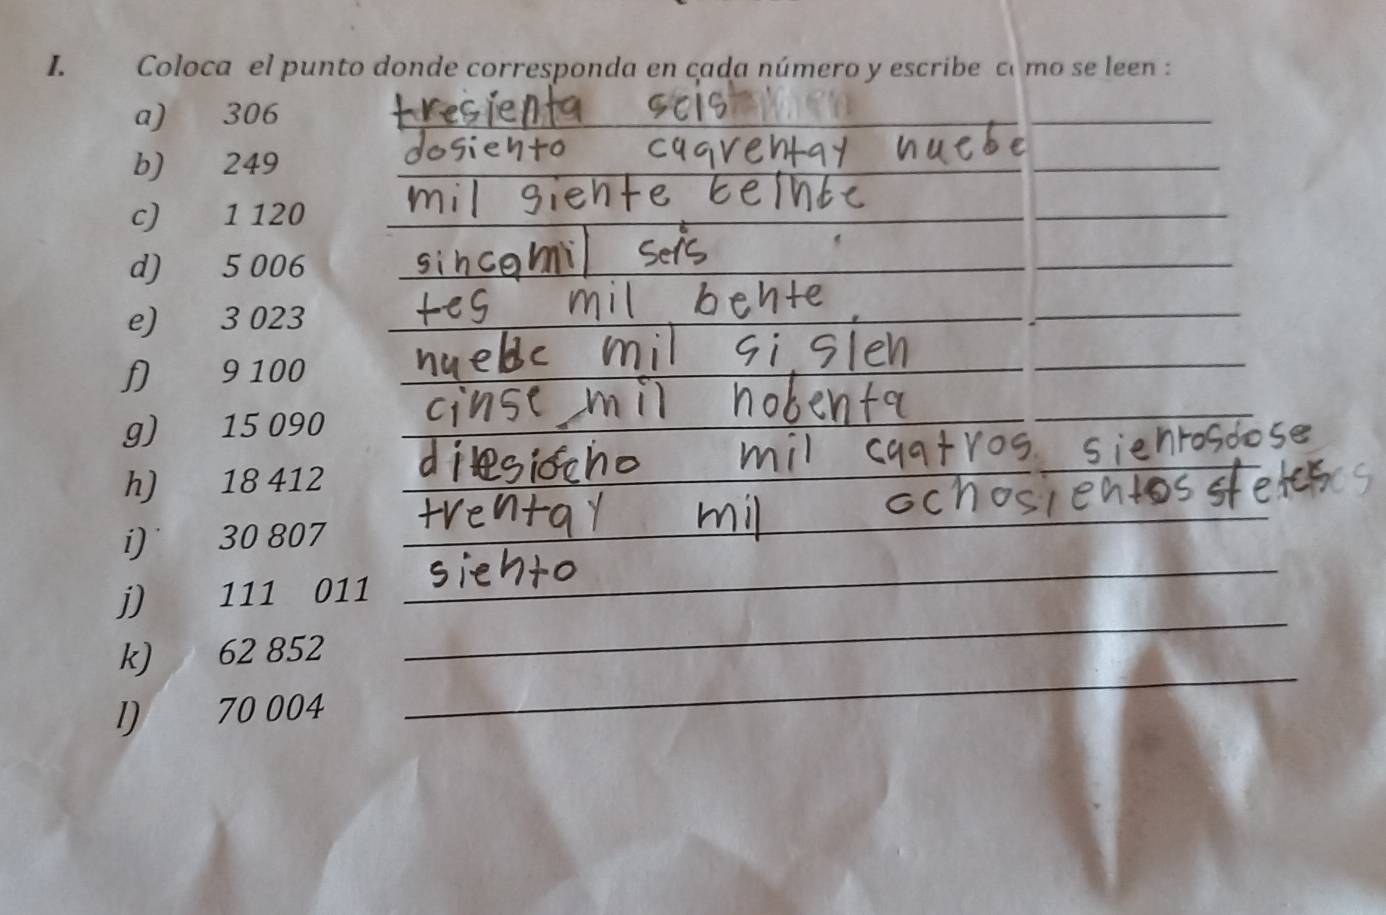 I. Coloca el punto donde corresponda en cada número y escribe como se leen :
a) 306 tresienta seis
b) 249 dosiento cuarentay nuebe
c) 1 120 mil siente beinte
d) 5 006 sincomil seis
e) 3 023 tes mil bente
f) 9 100 nuebe mil si sien
g) 15 090 cinse mil nobenta
h) 18 412 diesiocho mil cuatros sientosdose
i) 30 807 trentay mil ochosientos
j) 111 011 siento
k) 62 852
l) 70 004